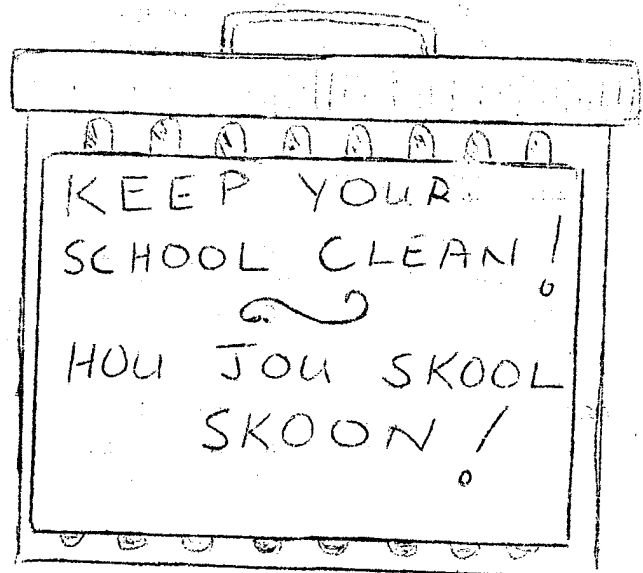 KEEP YOUR
SCHOOL CLEAN!
HOU JOU SKOOL
SKOON!